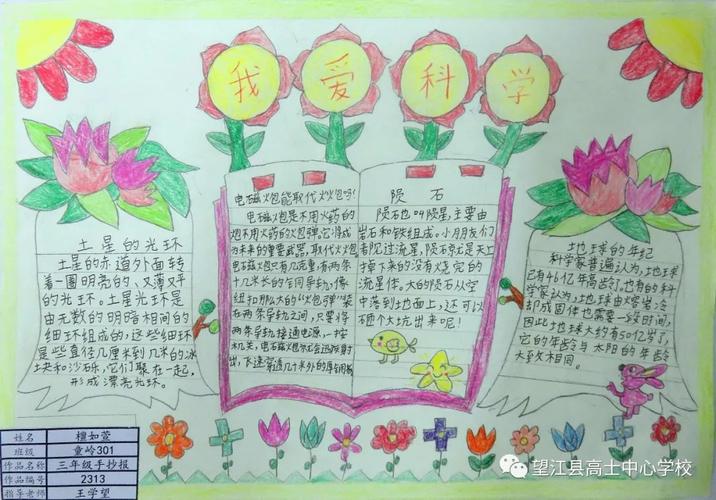 我爱科学
土星的光环
土星的赤道外面转
着一圈明亮的、又薄又平
的光环。土星光环是
由无数的明暗相间的
细环组成的,这些细环
是些直径几厘米到几米的冰
块和沙砾,它们聚在一起,
形成漂亮光环。
电磁炮能取代火炮吗
电磁炮是不用火药的
炮不用火药的炮弹,它将成
为未来的重要武器,取代火炮
电磁炮只有几克重,有两条
十几米长的导轨,像
组
在两条导轨之间,只要将
两条导轨接通电源,一按
机关,电磁炮
出,飞速
陨石
陨石也叫陨星,主要由
岩石和铁组成。小朋友们
看见过流星,陨石就是天上
掉下来的没有烧完的
流星体。大的陨石从空
中落到地面上,还可以
砸个大坑出来呢!
地球的年纪
科学家普遍认为,地球
已有46亿年高龄,也有的科
学家认为,地球由爆岩冷
却成固体也需要一段时间,
因此地球大约有50亿岁了,
它的年龄与太阳的年龄
大致相同。
姓名 檀如萱
班级 童岭301
作品名称 三年级手抄报
作品编号 2313
指导老师 王学望
望江县高士中心学校